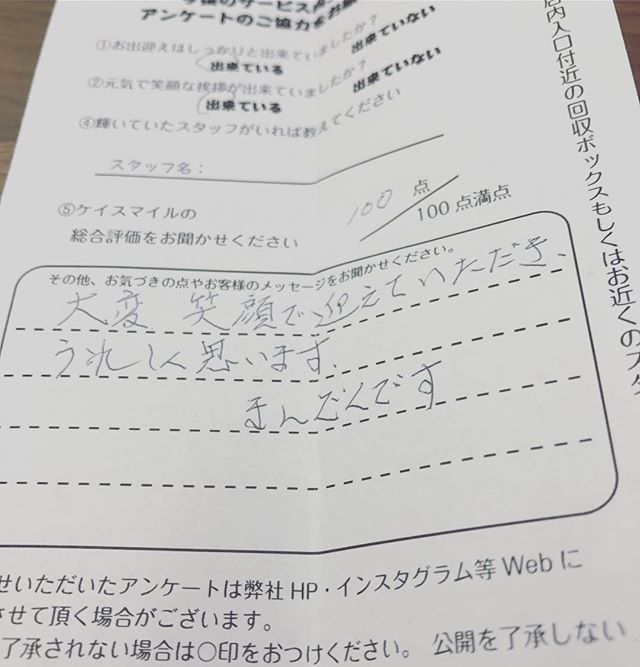 アンケートのご協力をお願
①お出迎えはしっかりと出来ていましたか？
出来ている 出来ていない
②元気で笑顔な挨拶が出来ていましたか？
出来ている 出来ていない
④輝いていたスタッフがいれば教えてください
スタッフ名：
⑤ケイスマイルの
総合評価をお聞かせください
100 点
100点満点
その他、お気づきの点やお客様のメッセージをお聞かせください。
大変 笑顔で迎えていただき、
うれしく思います。
まんぞくです
せいただいたアンケートは弊社HP・インスタグラム等Webに
させて頂く場合がございます。
了承されない場合は○印をおつけください。 公開を了承しない
店内入口付近の回収ボックスもしくはお近くのスタ